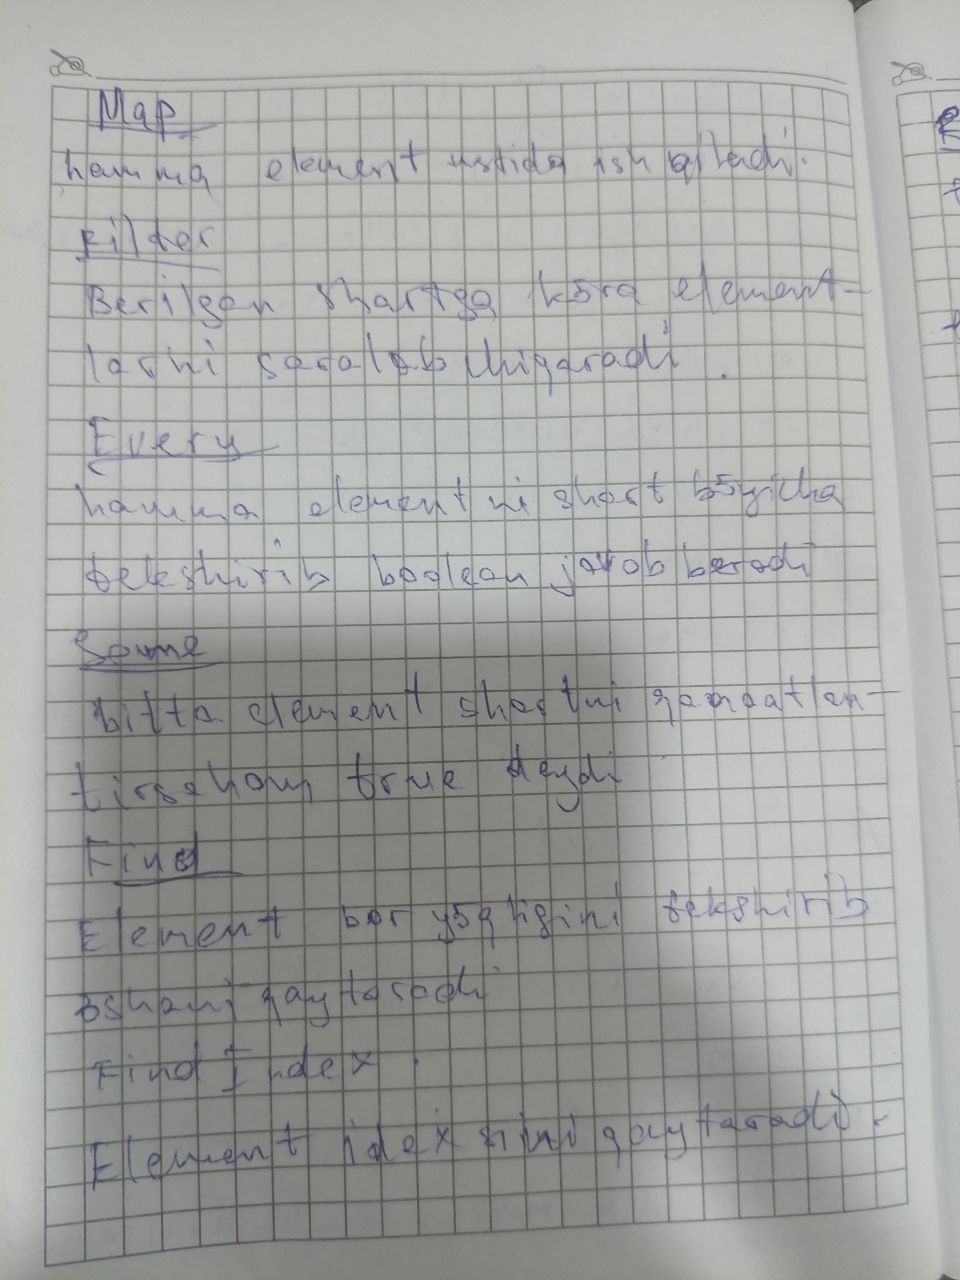 Map
hamma element ustida ish qiladi.
Filter
Berilgan shartga k5ra element-
larni saralab chiqaradi.
Every
hamma elementni shart b5yicha
tekshirib boolean javob beradi
Some
bitta element shartni qanoatlan-
tirsaham true deydi
Find
Element bor y5qligini tekshirib
5shani qaytaradi
Find Index.
Element idexsini qaytaradi.